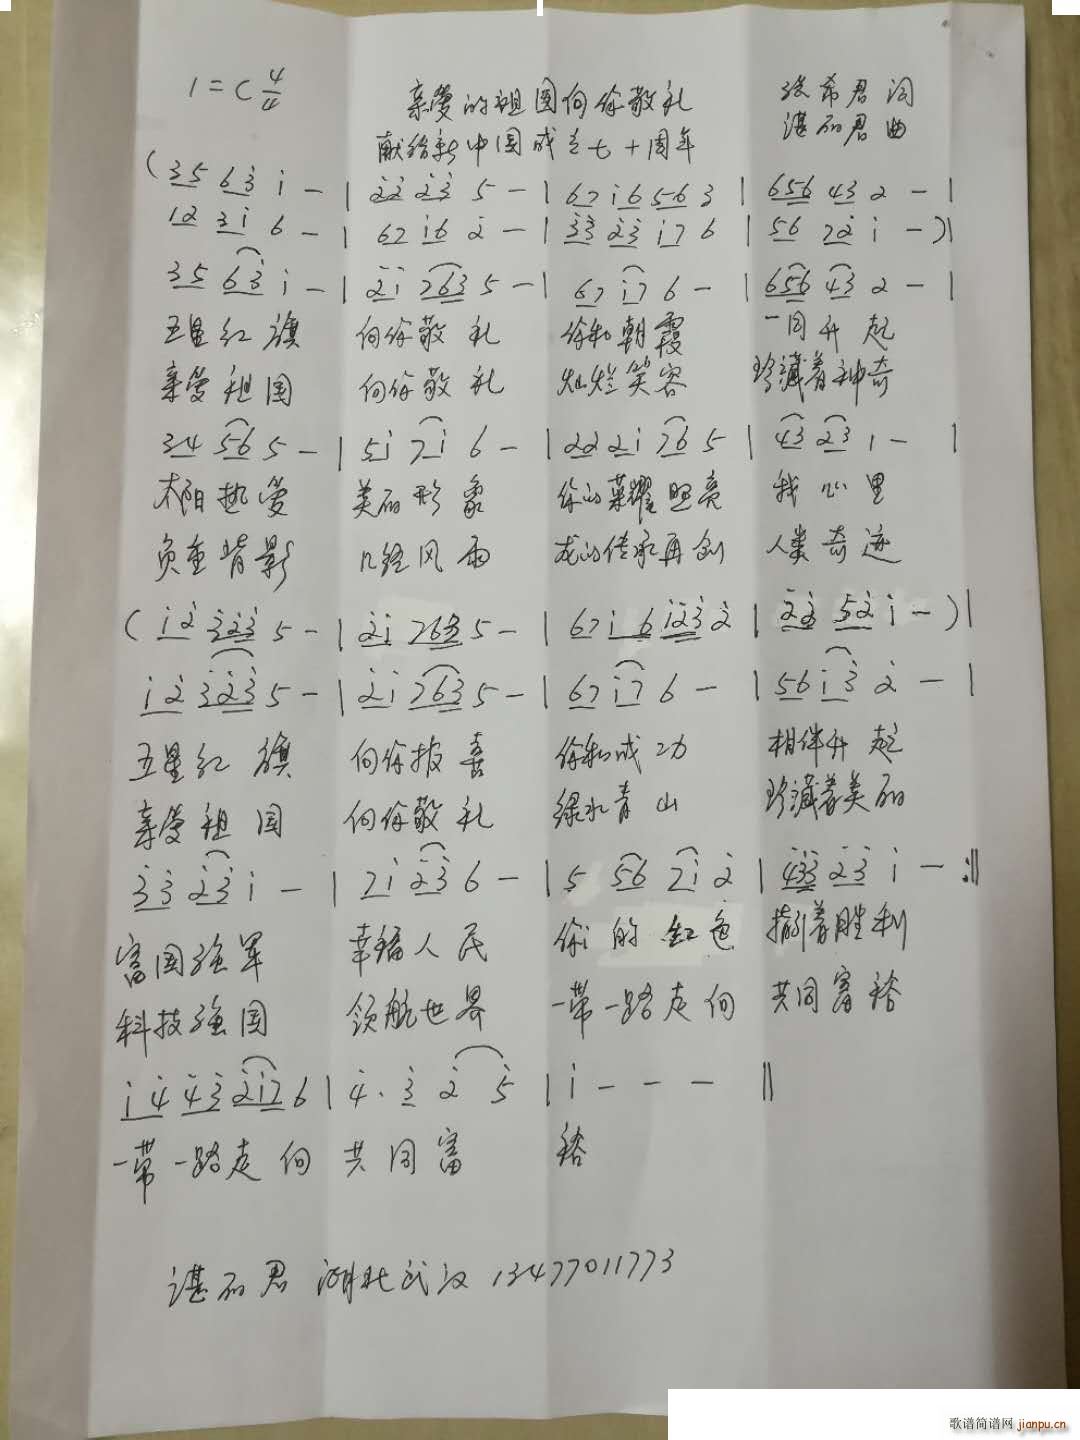 1=C 4/4 亲爱的祖国向你敬礼 张希君 词
献给新中国成立七十周年 谌丽君 曲
(35 63̇ i - | 2̇2̇ 2̇3̇ 5 - | 67 i6 56 3 | 656 43 2 - |
12 3i 6 - | 67 i6 2̇ - | 3̇3̇ 2̇3̇ i7 6 | 56 72̇ i - )|
35 63̇ i - | 2̇i 763 5 - | 67 i7 6 - | 656 43 2 - |
五星红旗 向你敬礼 你和朝霞 一同升起
亲爱祖国 向你敬礼 灿烂笑容 珍藏着神奇
34 56 5 - | 5i 7i 6 - | 22 2i 76 5 | 43 23 1 - |
太阳热爱 美丽形象 你的荣耀照亮 我心里
负重背影 几经风雨 龙的传承再创 人类奇迹
(i2̇ 3̇2̇3̇ 5 - | 2̇i 763 5 - | 67 i6 i2̇3̇ 2̇ | 2̇2̇ 52̇ i - )|
i2̇ 3̇2̇3̇ 5 - | 2̇i 763 5 - | 67 i7 6 - | 56 i3̇ 2̇ - |
五星红旗 向你报喜 你和成功 相伴升起
亲爱祖国 向你敬礼 绿水青山 珍藏着美丽
3̇3̇ 2̇3̇ i - | 7i 2̇3̇ 6 - | 5 56 7i 2̇ | 4̇3̇3̇ 2̇3̇ i - :‖
富国强军 幸福人民 你的红色 指引着胜利
科技强国 领航世界 一带一路走向 共同富裕
i4̇ 4̇3̇ 2̇i7 6 | 4̇· 3̇ 2̇ 5̇ | i - - - ‖
一带一路走向 共同富 裕
谌丽君 湖北武汉 13477011773
歌谱简谱网 jianpu.cn